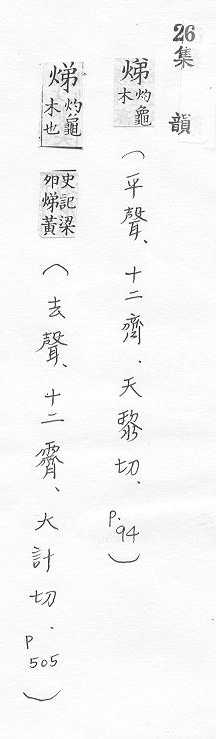 26集韻
焍灼龜木(平聲、十二齊.天黎切、p.94)
焍灼龜木也史記梁卯焍黃(去聲、十二霽、大計切.p505)